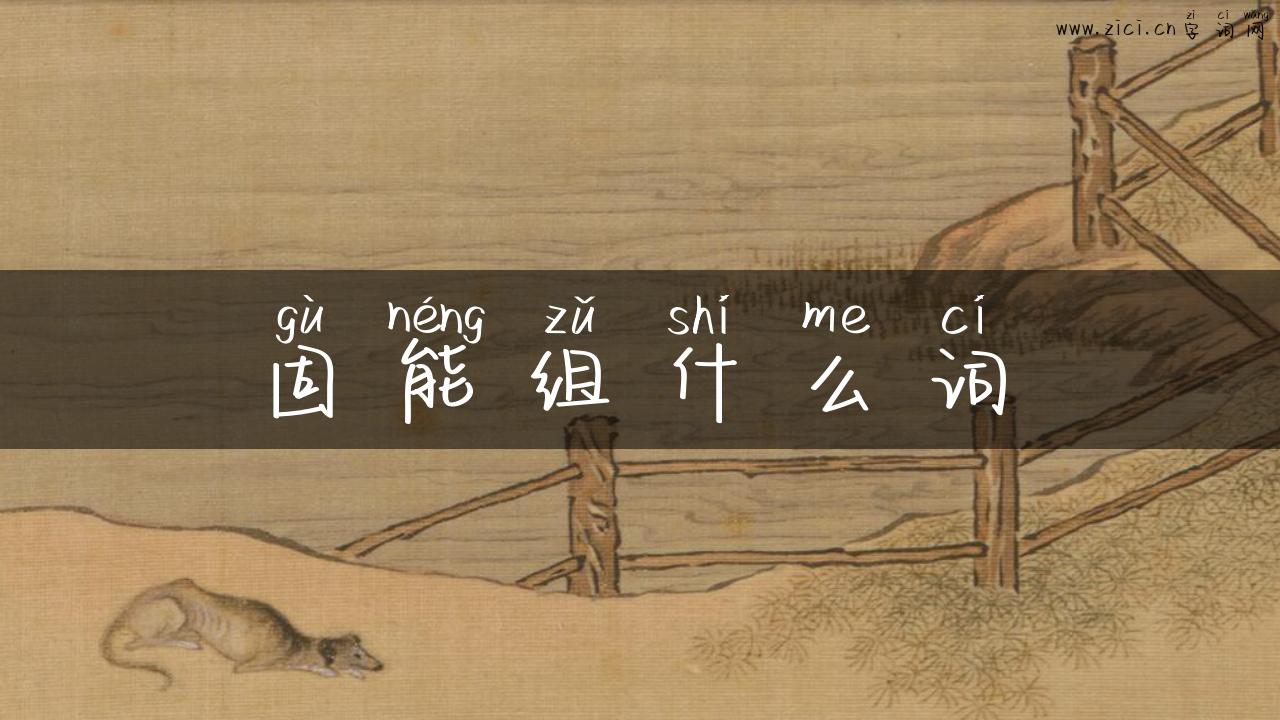 zì cí wǎng
www.zici.cn 字词网
gù néng zǔ shí me cí
固能组什么词